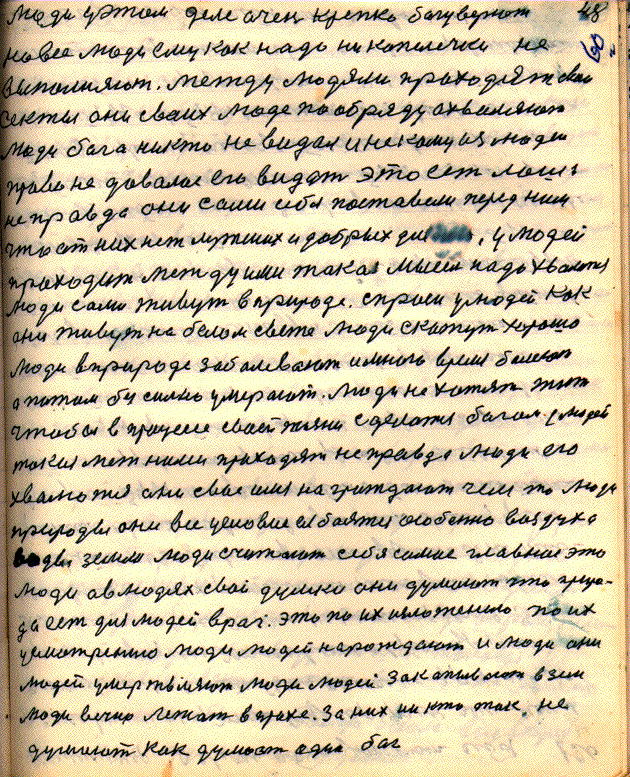 люди у этом деле очен крепко багуверуют 48
но все люди ему как надо никопилечки не 60
выполняют. между людями праходят свои
секты они сваих люде по обряду охваляют
люди бога никто не видал и некому из людей
право не довалос его видат это ест лож
не правда они сами себя поставели перед ним
что от них нет лутших и добрых , у людей
праходит между ими такая мысел надо хвалится
люди сами живут в природе. спроси у людей как
они живут на белом свете люди скажут хорошо
люди в природе заболевают и много время болеют
а потом бу силно умерают. люди не хотят
чтобы в процессе своей жизни сделатся богом. у людей
такая меж ними праходят не правда люди его
хвалются они свое имя награждают чем то люди
природы они все условие боятся особенно воздуха
воды земли люди считают себя самае главное это
люди а в людях свои думки они думают что приро-
да ест для людей враг. это по их изложению по их
усмотрению люди людей нарождают и люди они
людей умертвляют люди людей закапывают в земл
люди вечно лежат в прахе. За них ни кто так, не
думают как думает один бог